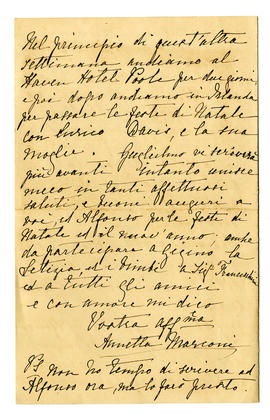 Nel principio di quest'altra
settimana andiamo al
Haven Hotel Poole per due giorni,
e poi dopo andiamo in Irlanda
per passare le feste di Natale
con Enrico Davis, e la sua
moglie. Guglielmo vi scriverà
più avanti Intanto unisce
meco in tanti affettuosi
saluti, e buoni auguri a
voi, ed Alfonso per le feste di
Natale ed il nuovo anno; anche
da partecipare a la
Letizia, ed i bimbi la Sig
ed a tutti gli amici
e con amore mi dico
Vostra affma
Annetta Marconi
PS Non ho tempo di scrivere ad
Alfonso ora, ma lo farò presto.